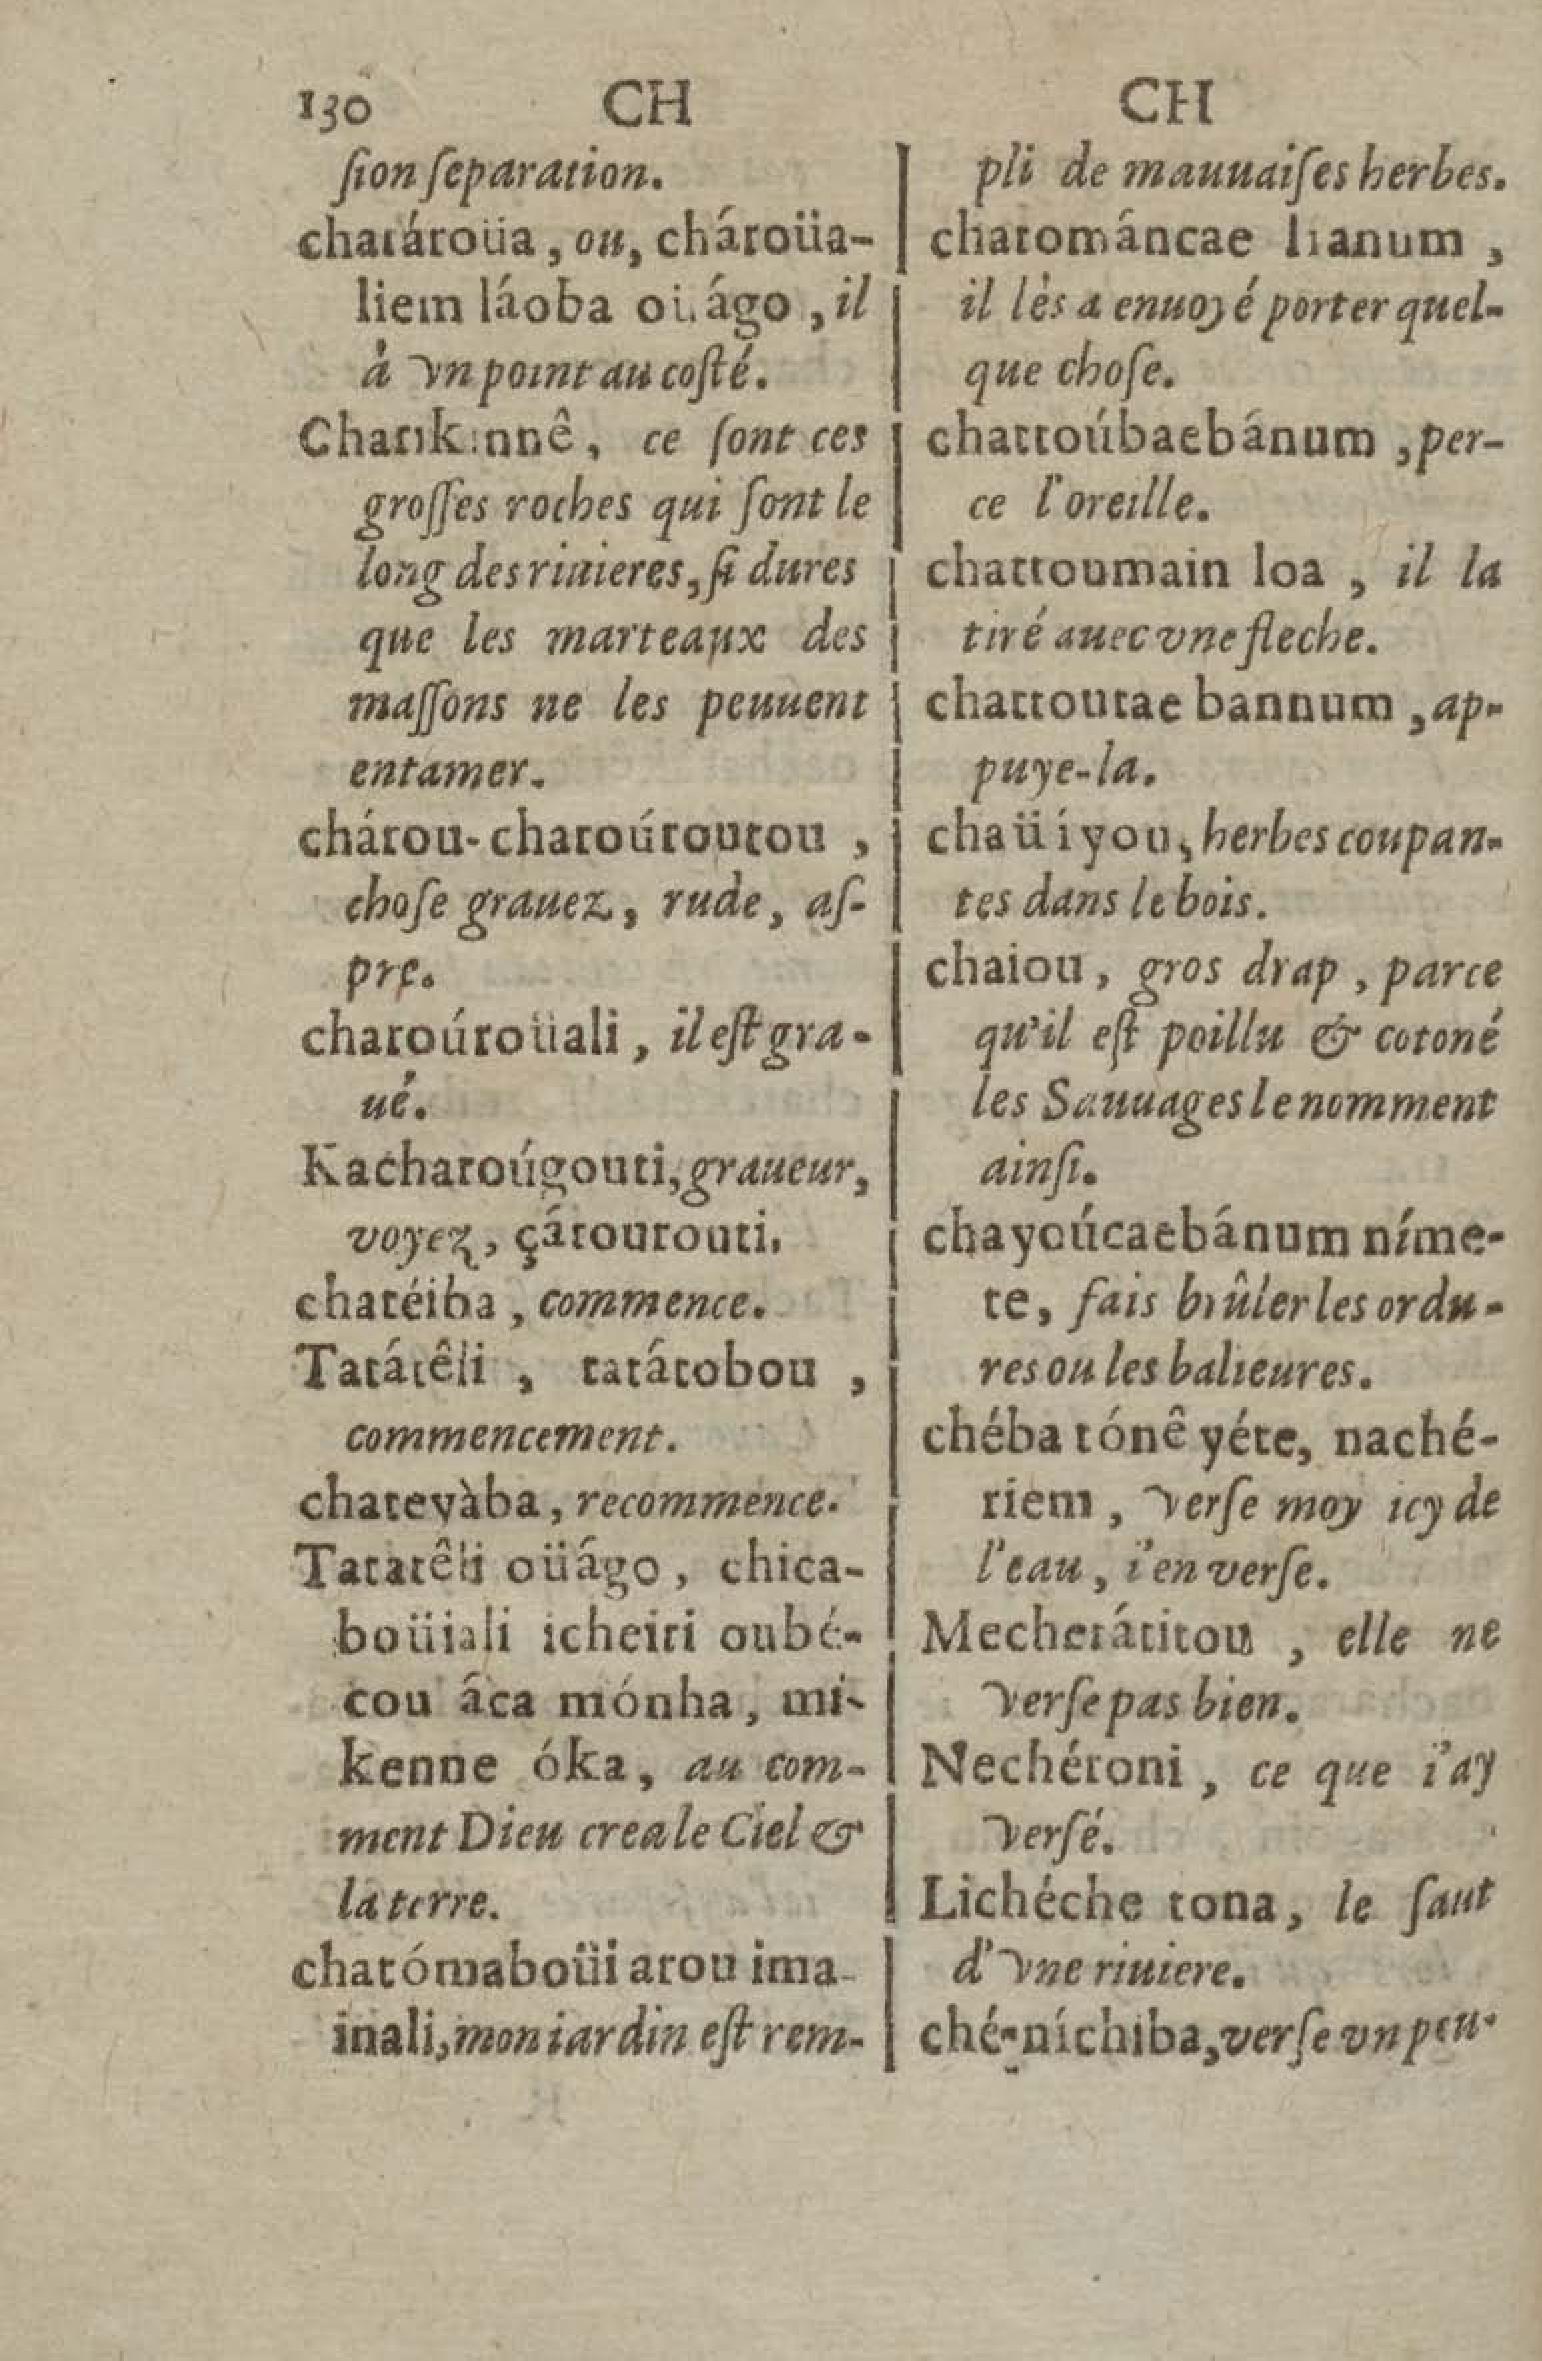 130 CH CH
ſion ſeparation.
chatároüa, ou, chároüa-
liem láoba oüágo, il
à vn point au coſté.
Charikinnê, ce ſont ces
groſſes roches qui ſont le
long des riuieres, ſi dures
que les marteaux des
maſſons ne les peuuent
entamer.
chátou-chatoútoutou,
choſe grauez, rude, aſ-
pre.
chatoúroüali, il eſt gra-
ué.
Kachatoúgouti, graueur,
voyez, çátouroúti.
chatéiba, commence.
Tatátêli, tatátobou,
commencement.
chateyàba, recommence.
Tatatêli oüágo, chica-
boüiali icheiri oubé-
cou áca mónha, mi-
kenne óka, au com-
ment Dieu crea le Ciel &
la terre.
chatómaboüi arou ima-
inali, mon iardin eſt rem-
pli de mauuaiſes herbes.
chatománcae lianum,
il lès a enuoyé porter quel-
que choſe.
chattoúbaebánum, per-
ce l'oreille.
chattoumain loa, il la
tiré auec vne fleche.
chattoutae bannum, ap-
puye-la.
chaüiyou, herbes coupan-
tes dans le bois.
chaiou, gros drap, parce
qu'il eſt poillu & cotoné
les Sauuages le nomment
ainſi.
chayoúcaebánum níme-
te, fais brûler les ordu-
res ou les balieures.
chéba tónê yéte, naché-
riem, verſe moy icy de
l'eau, i'en verſe.
Mechetátitou, elle ne
verſe pas bien.
Nechéroni, ce que i'ay
verſé.
Lichéche tona, le ſaut
d'vne riuiere.
ché-níchiba, verſe vn peu.